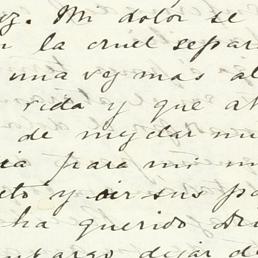 uz. Mi dolor se
n la cruel separ
una vez mas al
rida y que at
de mezclar mu
ia para mi m
eto y oir sus pa
ha querido Di
embargo dejar de